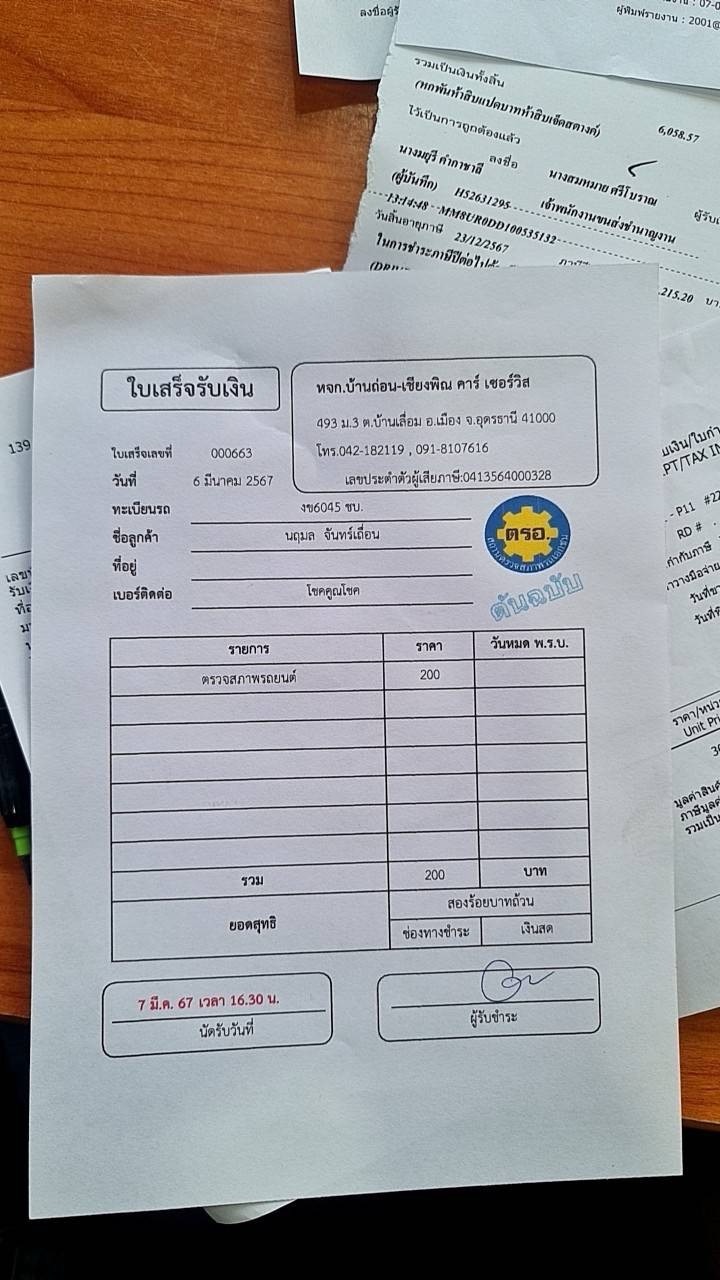 ลงชื่อผู้รั
ผู้พิมพ์รายงาน : 2001@
รวมเป็นเงินทั้งสิ้น 6,058.57
(หกพันห้าสิบแปดบาทห้าสิบเจ็ดสตางค์)
ไว้เป็นการถูกต้องแล้ว
ลงชื่อ
นางมยุรี คำภาชาลี นางสมหมาย ศรีโบราณ
(ผู้บันทึก) H52631295 เจ้าพนักงานขนส่งชำนาญงาน
13:14:48 MM8UR0DD100535132
วันสิ้นอายุภาษี 23/12/2567
ในการชำระภาษีปีต่อไป .215.20
ใบเสร็จรับเงิน
หจก.บ้านถ่อน-เชียงพิณ คาร์ เซอร์วิส
493 ม.3 ต.บ้านเลื่อม อ.เมือง จ.อุดรธานี 41000
ใบเสร็จเลขที่ 000663 โทร.042-182119 , 091-8107616
วันที่ 6 มีนาคม 2567 เลขประจำตัวผู้เสียภาษี:0413564000328
ทะเบียนรถ งข6045 ชบ.
ชื่อลูกค้า นฤมล จันทร์เถื่อน
ที่อยู่
เบอร์ติดต่อ โชคคูณโชค
ตรอ.
สถานตรวจสภาพรถเอกชน
ต้นฉบับ
รายการ ราคา วันหมด พ.ร.บ.
ตรวจสภาพรถยนต์ 200
รวม 200 บาท
ยอดสุทธิ สองร้อยบาทถ้วน
ช่องทางชำระ เงินสด
7 มี.ค. 67 เวลา 16.30 น.
นัดรับวันที่
ผู้รับชำระ
139
PT/TAX IN
P11 #22
RD #
ราคา/หน่วย
Unit Pri
มูลค่าสินค้
รวมเป็น